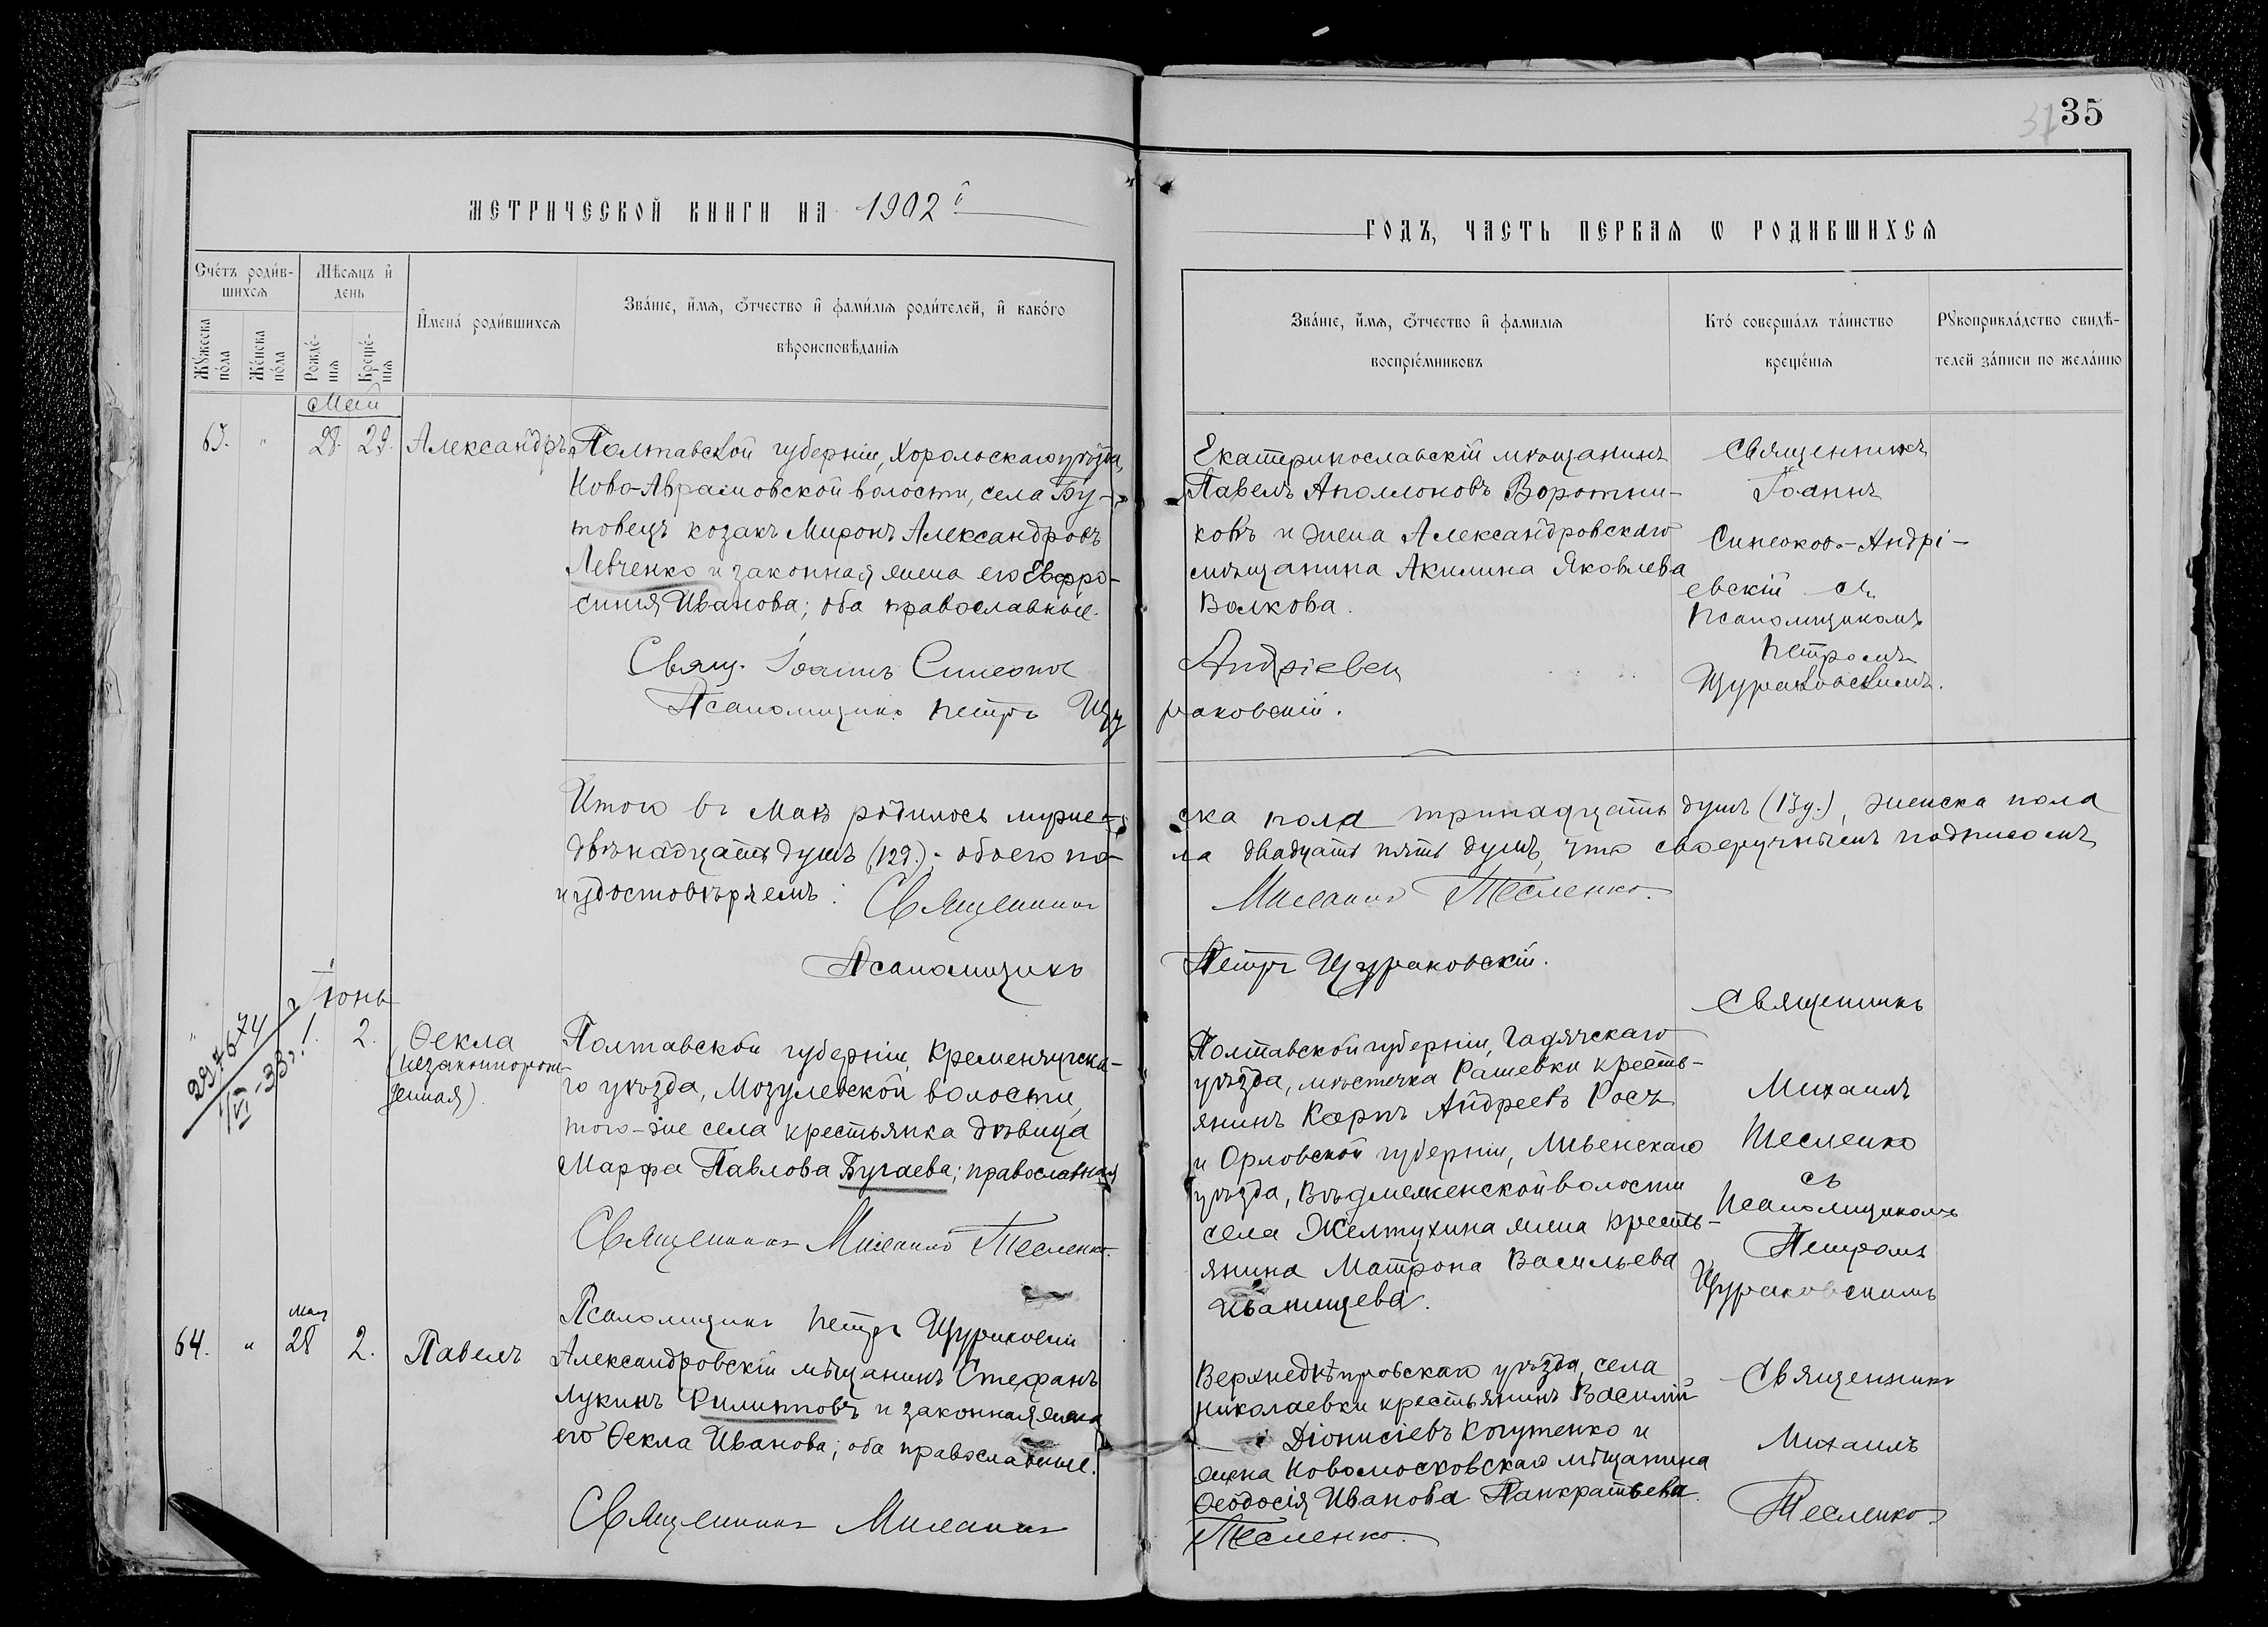 35
МЕТРИЧЕСКОЙ КНИГИ НА 1902й
ГОДЪ, ЧАСТЬ ПЕРВАЯ Ѡ РОДИВШИХСЯ
Счётъ родив-
шихся
Мѣсяцъ и
день
Мужеска
пола
Женска
пола
Рожде-
нія
Креще-
нія
Имена родившихся
Званіе, имя, отчество и фамилія родителей, и какого
вѣроисповѣданія
Званіе, имя, отчество и фамилія
воспріемниковъ
Кто совершалъ таинство
крещенія
Рукоприкладство свидѣ-
телей записи по желанію
Май
63. " 28. 29. Александръ
Полтавской губерніи, Хорольскаго уѣзда,
Ново-Аврамовской волости, села Бу-
товецъ козакъ Миронъ Александровъ
Левченко и законная жена его Евфро-
синія Иванова; оба православные.
Свящ. Іоаннъ Синеоков
Андріевск
Псаломщикъ Петръ Щу
раковскій.
Екатеринославскій мѣщанинъ
Павелъ Аполлоновъ Воротни-
ковъ и жена Александровскаго
мѣщанина Акилина Яковлева
Волкова.
Священникъ
Іоаннъ
Синеоков-Андрі-
евскій съ
псаломщикомъ
Петромъ
Щураковскимъ.
Итого въ Маѣ родилось муже-
ска пола тринадцать душъ (13 д.), женска пола
двѣнадцать душъ (12 д.); обоего по-
ла двадцать пять душъ, что своеручнымъ подписомъ
и удостовѣряемъ: Священникъ
Михаилъ Тесленко.
Псаломщикъ
Петръ Щураковскій.
Іюнь
297674
1/VI-33 г.
" 1. 2. Ѳекла
(незаконнорож-
денная).
Полтавской губерніи, Кременчугска-
го уѣзда, Мозулевской волости,
того-же села крестьянка дѣвица
Марфа Павлова Бугаева; православная
Священникъ Михаилъ Тесленко.
Псаломщикъ Петръ Щураковскій
Полтавской губерніи, Гадячскаго
уѣзда, мѣстечка Рашевки кресть-
янинъ Карпъ Андреевъ Росъ
и Орловской губерніи, Ливенскаго
уѣзда, волости
села Желтухина жена кресть-
янина Матрона Васильева
Иванищева.
Священникъ
Михаилъ
Тесленко
съ
псаломщикомъ
Петромъ
Щураковскимъ
64. " май 28 2. Павелъ
Александровскій мѣщанинъ Стефанъ
Лукинъ Филипповъ и законная жена
его Ѳекла Иванова; оба православные.
Священникъ Михаилъ
Тесленко.
Верхнеднѣпровскаго уѣзда, села
Николаевки крестьянинъ Василій
Діонисіевъ Когутенко и
жена Новомосковскаго мѣщанина
Ѳеодосія Иванова Панкратьева.
Священникъ
Михаилъ
Тесленко